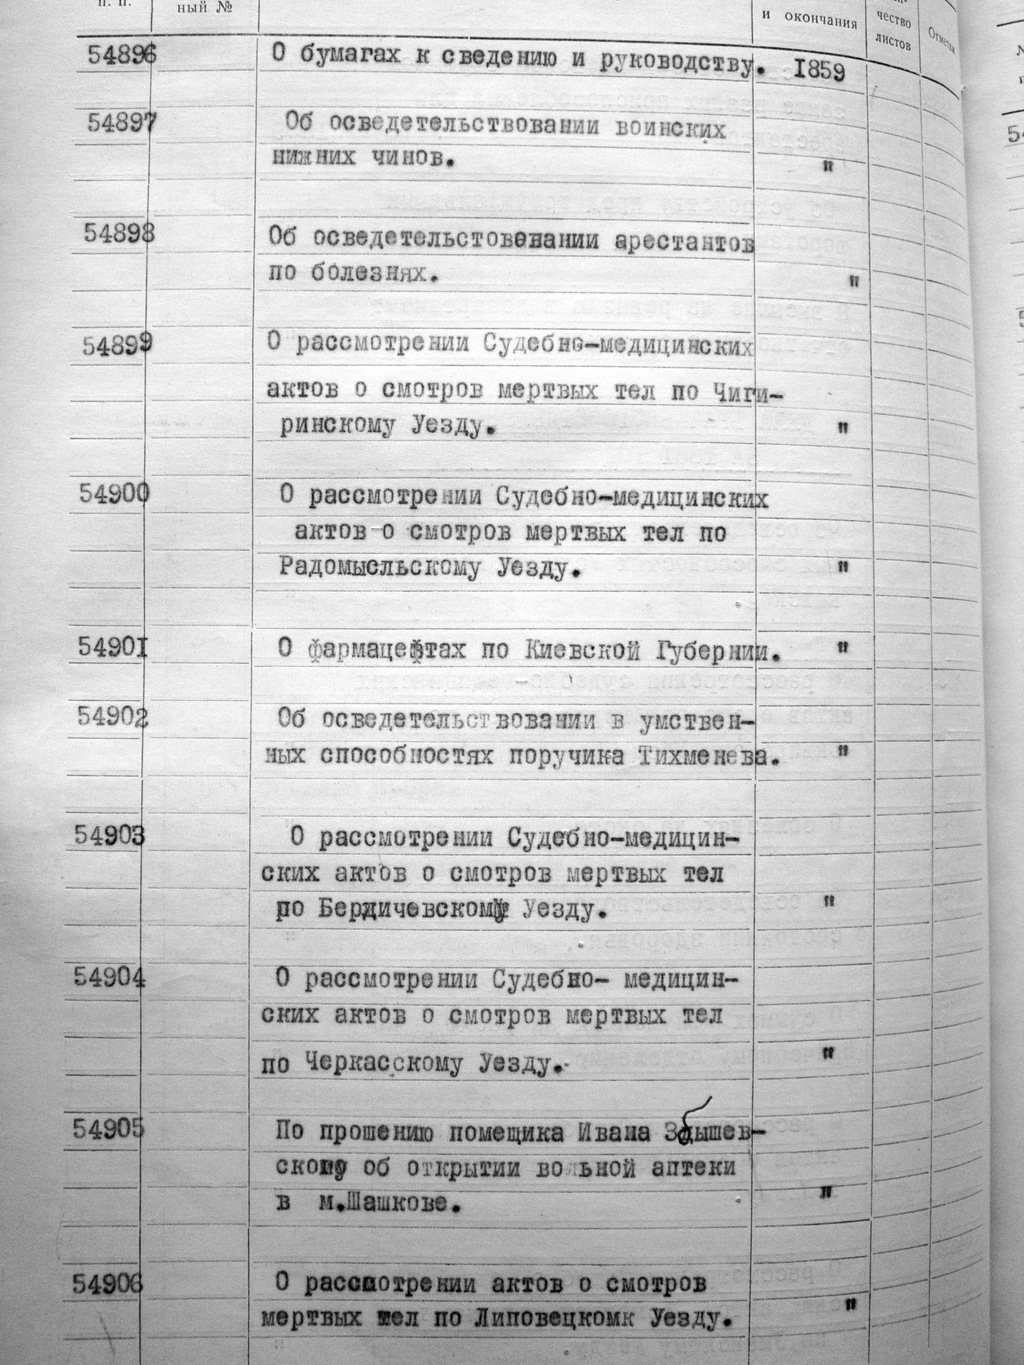 п. п.
ный №
и окончания
чество
листов
54896 О бумагах к сведению и руководству. 1859
54897 Об осведетельствовании воинских
нижних чинов. "
54898 Об осведетельстовенании арестантов
по болезнях. "
54899 О рассмотрении Судебно-медицинских
актов о смотров мертвых тел по Чиги-
ринскому Уезду. "
54900 О рассмотрении Судебно-медицинских
актов о смотров мертвых тел по
Радомысльскому Уезду. "
54901 О фармацефтах по Киевской Губернии. "
54902 Об осведетельствовании в умствен-
ных способностях поручика Тихменева. "
54903 О рассмотрении Судебно-медицин-
ских актов о смотров мертвых тел
по Бердичевскому Уезду. "
54904 О рассмотрении Судебно- медицин-
ских актов о смотров мертвых тел
по Черкасскому Уезду. "
54905 По прошению помещика Ивана Збышев-
ског об открытии вольной аптеки
в м.Шашкове. "
54906 О рассмотрении актов о смотров
мертвых тел по Липовецкомк Уезду. "